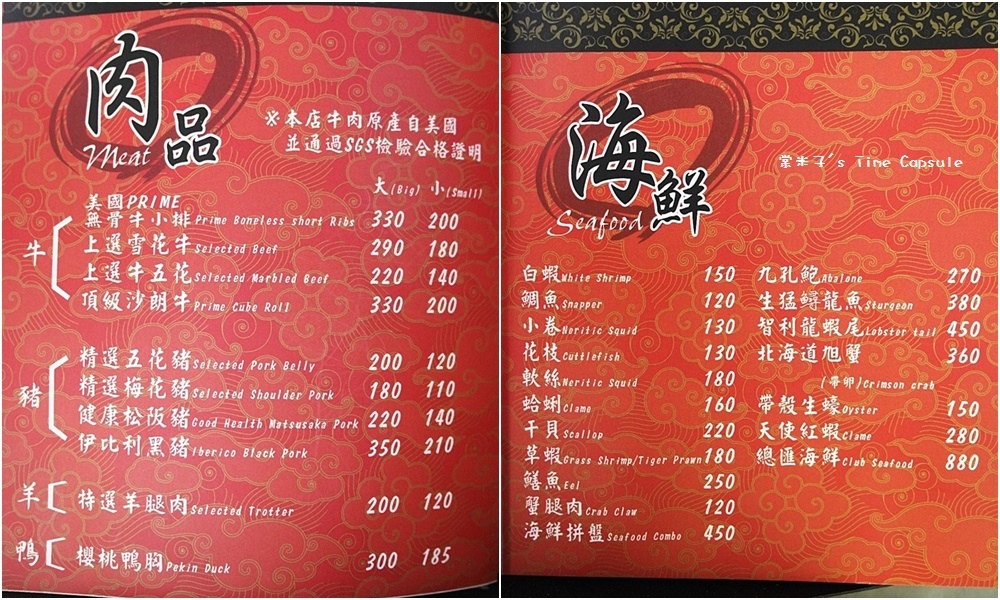 肉品
Meat
※本店牛肉原產自美國
並通過SGS檢驗合格證明
大(Big) 小(Small)
牛
美國PRIME
無骨牛小排Prime Boneless short Ribs 330 200
上選雪花牛Selected Beef 290 180
上選牛五花Selected Marbled Beef 220 140
頂級沙朗牛Prime Cube Roll 330 200
豬
精選五花豬Selected Pork Belly 200 120
精選梅花豬Selected Shoulder Pork 180 110
健康松阪豬Good Health Matsusaka Pork 220 140
伊比利黑豬Iberico Black Pork 350 210
羊
特選羊腿肉Selected Trotter 200 120
鴨
櫻桃鴨胸Pekin Duck 300 185
海鮮
Seafood
掌米子's Time Capsule
白蝦White Shrimp 150
鯛魚Snapper 120
小卷Neritic Squid 130
花枝Cuttlefish 130
軟絲Neritic Squid 180
蛤蜊Clame 160
干貝Scallop 220
草蝦Grass Shrimp/Tiger Prawn 180
鱔魚Eel 250
蟹腿肉Crab Claw 120
海鮮拼盤Seafood Combo 450
九孔鮑Abalone 270
生猛鱘龍魚Sturgeon 380
智利龍蝦尾Lobster tail 450
北海道旭蟹 360
(帶卵)Crimson crab
帶殼生蠔Oyster 150
天使紅蝦Clame 280
總匯海鮮Club Seafood 880